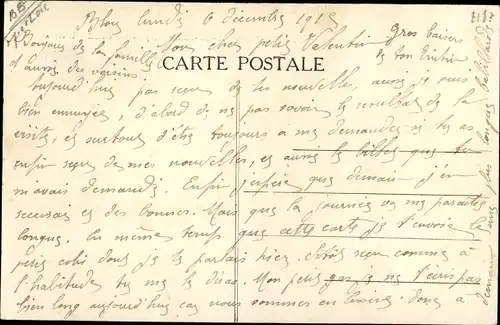 Blois lundi 6 décembre 1915
Mon cher petit Valentin
Gros baisers
de ton Titin
Bonjour de la famille
et aussi des voisins.
CARTE POSTALE
Aujourd'hui pas reçu de tes nouvelles, aussi je suis
bien ennuyée, d'abord de ne pas savoir le résultat de la
visite, et surtout d'être toujours à me demander si tu as
enfin reçu de mes nouvelles, et aussi le billet que tu
m'avais demandé. Enfin j'espère que demain j'en
recevrai et des bonnes. Mais que la journée va me paraître
longue. En même temps que cette carte je t'envoie
petit colis dont je te parlais hier. Sitôt reçu comme à
l'habitude tu me le diras. Mon petit gars je ne t'écris pas
bien long aujourd'hui car nous sommes en donc à
demain plus